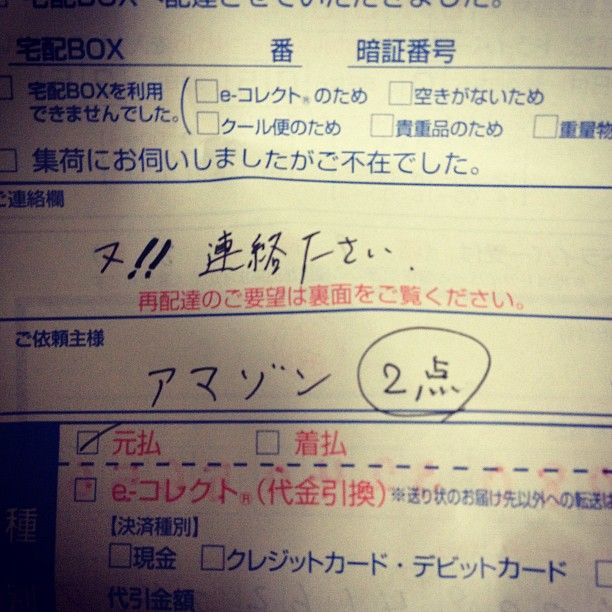 宅配BOX 番 暗証番号
宅配BOXを利用できませんでした。
□e-コレクト®のため □空きがないため
□クール便のため □貴重品のため □重量物
□集荷にお伺いしましたがご不在でした。
ご連絡欄
ヌ!! 連絡下さい.
再配達のご要望は裏面をご覧ください。
ご依頼主様
アマゾン 2点
☑元払 □着払
□e-コレクト®(代金引換)※送り状のお届け先以外への転送は
種
【決済種別】
□現金 □クレジットカード・デビットカード
代引金額